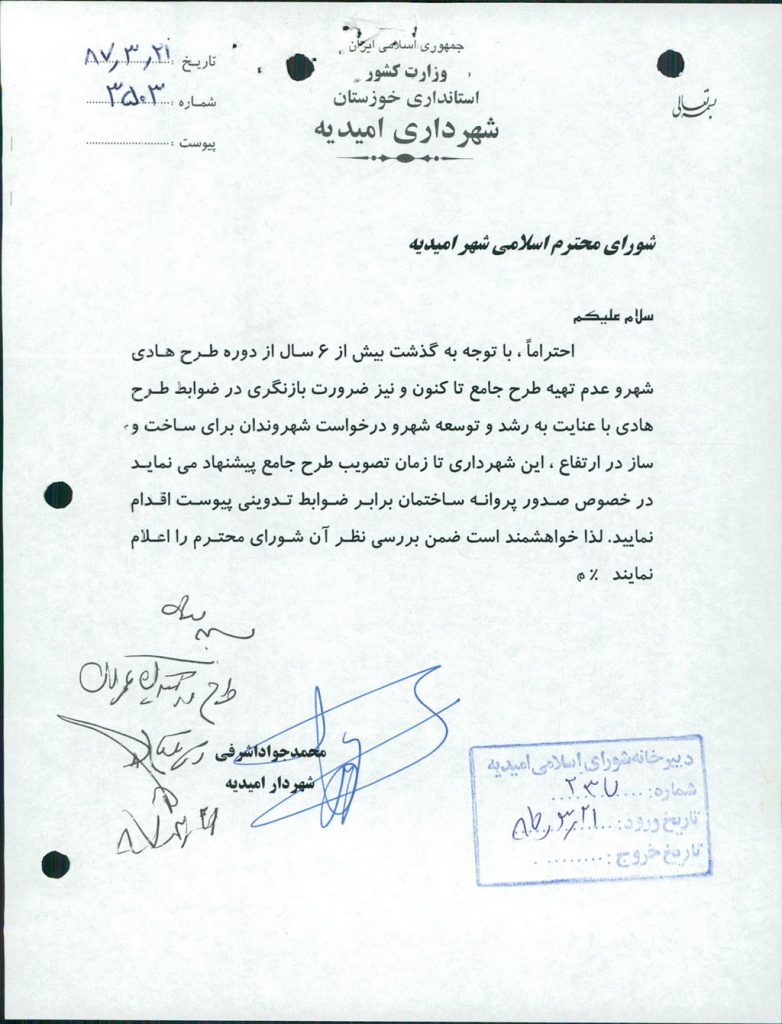 بسمه تعالی
جمهوری اسلامی ایران
وزارت کشور
استانداری خوزستان
شهرداری امیدیه
تاریخ : ۸۷٫۳٫۲۱
شماره : ۳۵۰۳
پیوست :
شورای محترم اسلامی شهر امیدیه
سلام علیکم
احتراماً ، با توجه به گذشت بیش از ۶ سال از دوره طرح هادی
شهرو عدم تهیه طرح جامع تا کنون و نیز ضرورت بازنگری در ضوابط طرح
هادی با عنایت به رشد و توسعه شهرو درخواست شهروندان برای ساخت و
ساز در ارتفاع ، این شهرداری تا زمان تصویب طرح جامع پیشنهاد می نماید
در خصوص صدور پروانه ساختمان برابر ضوابط تدوینی پیوست اقدام
نمایید. لذا خواهشمند است ضمن بررسی نظر آن شورای محترم را اعلام
نمایند ٪ م
محمدجواداشرفی
شهردار امیدیه
دبیرخانه شورای اسلامی امیدیه
شماره: ۲۳۷
تاریخ ورود: ۸۷٫۳٫۲۱
تاریخ خروج: